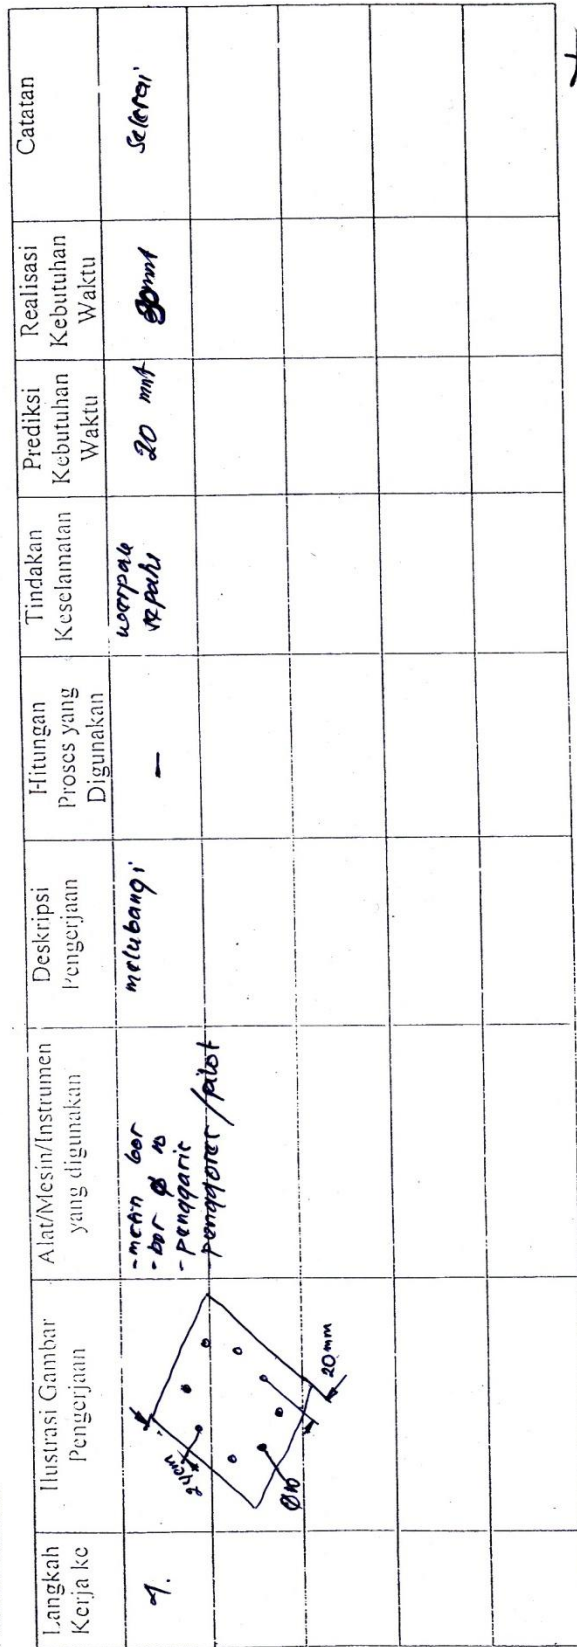 Langkah
Kerja ke
Ilustrasi Gambar
Pengerjaan
Alat/Mesin/Instrumen
yang digunakan
Deskripsi
Pengerjaan
Hitungan
Proses yang
Digunakan
Tindakan
Keselamatan
Prediksi
Kebutuhan
Waktu
Realisasi
Kebutuhan
Waktu
Catatan
Ø10
20 mm
- mesin bor
- bor Ø 10
- penggaris
- penggores / pilot
melubangi
-
sepatu
20 mnt
selesai